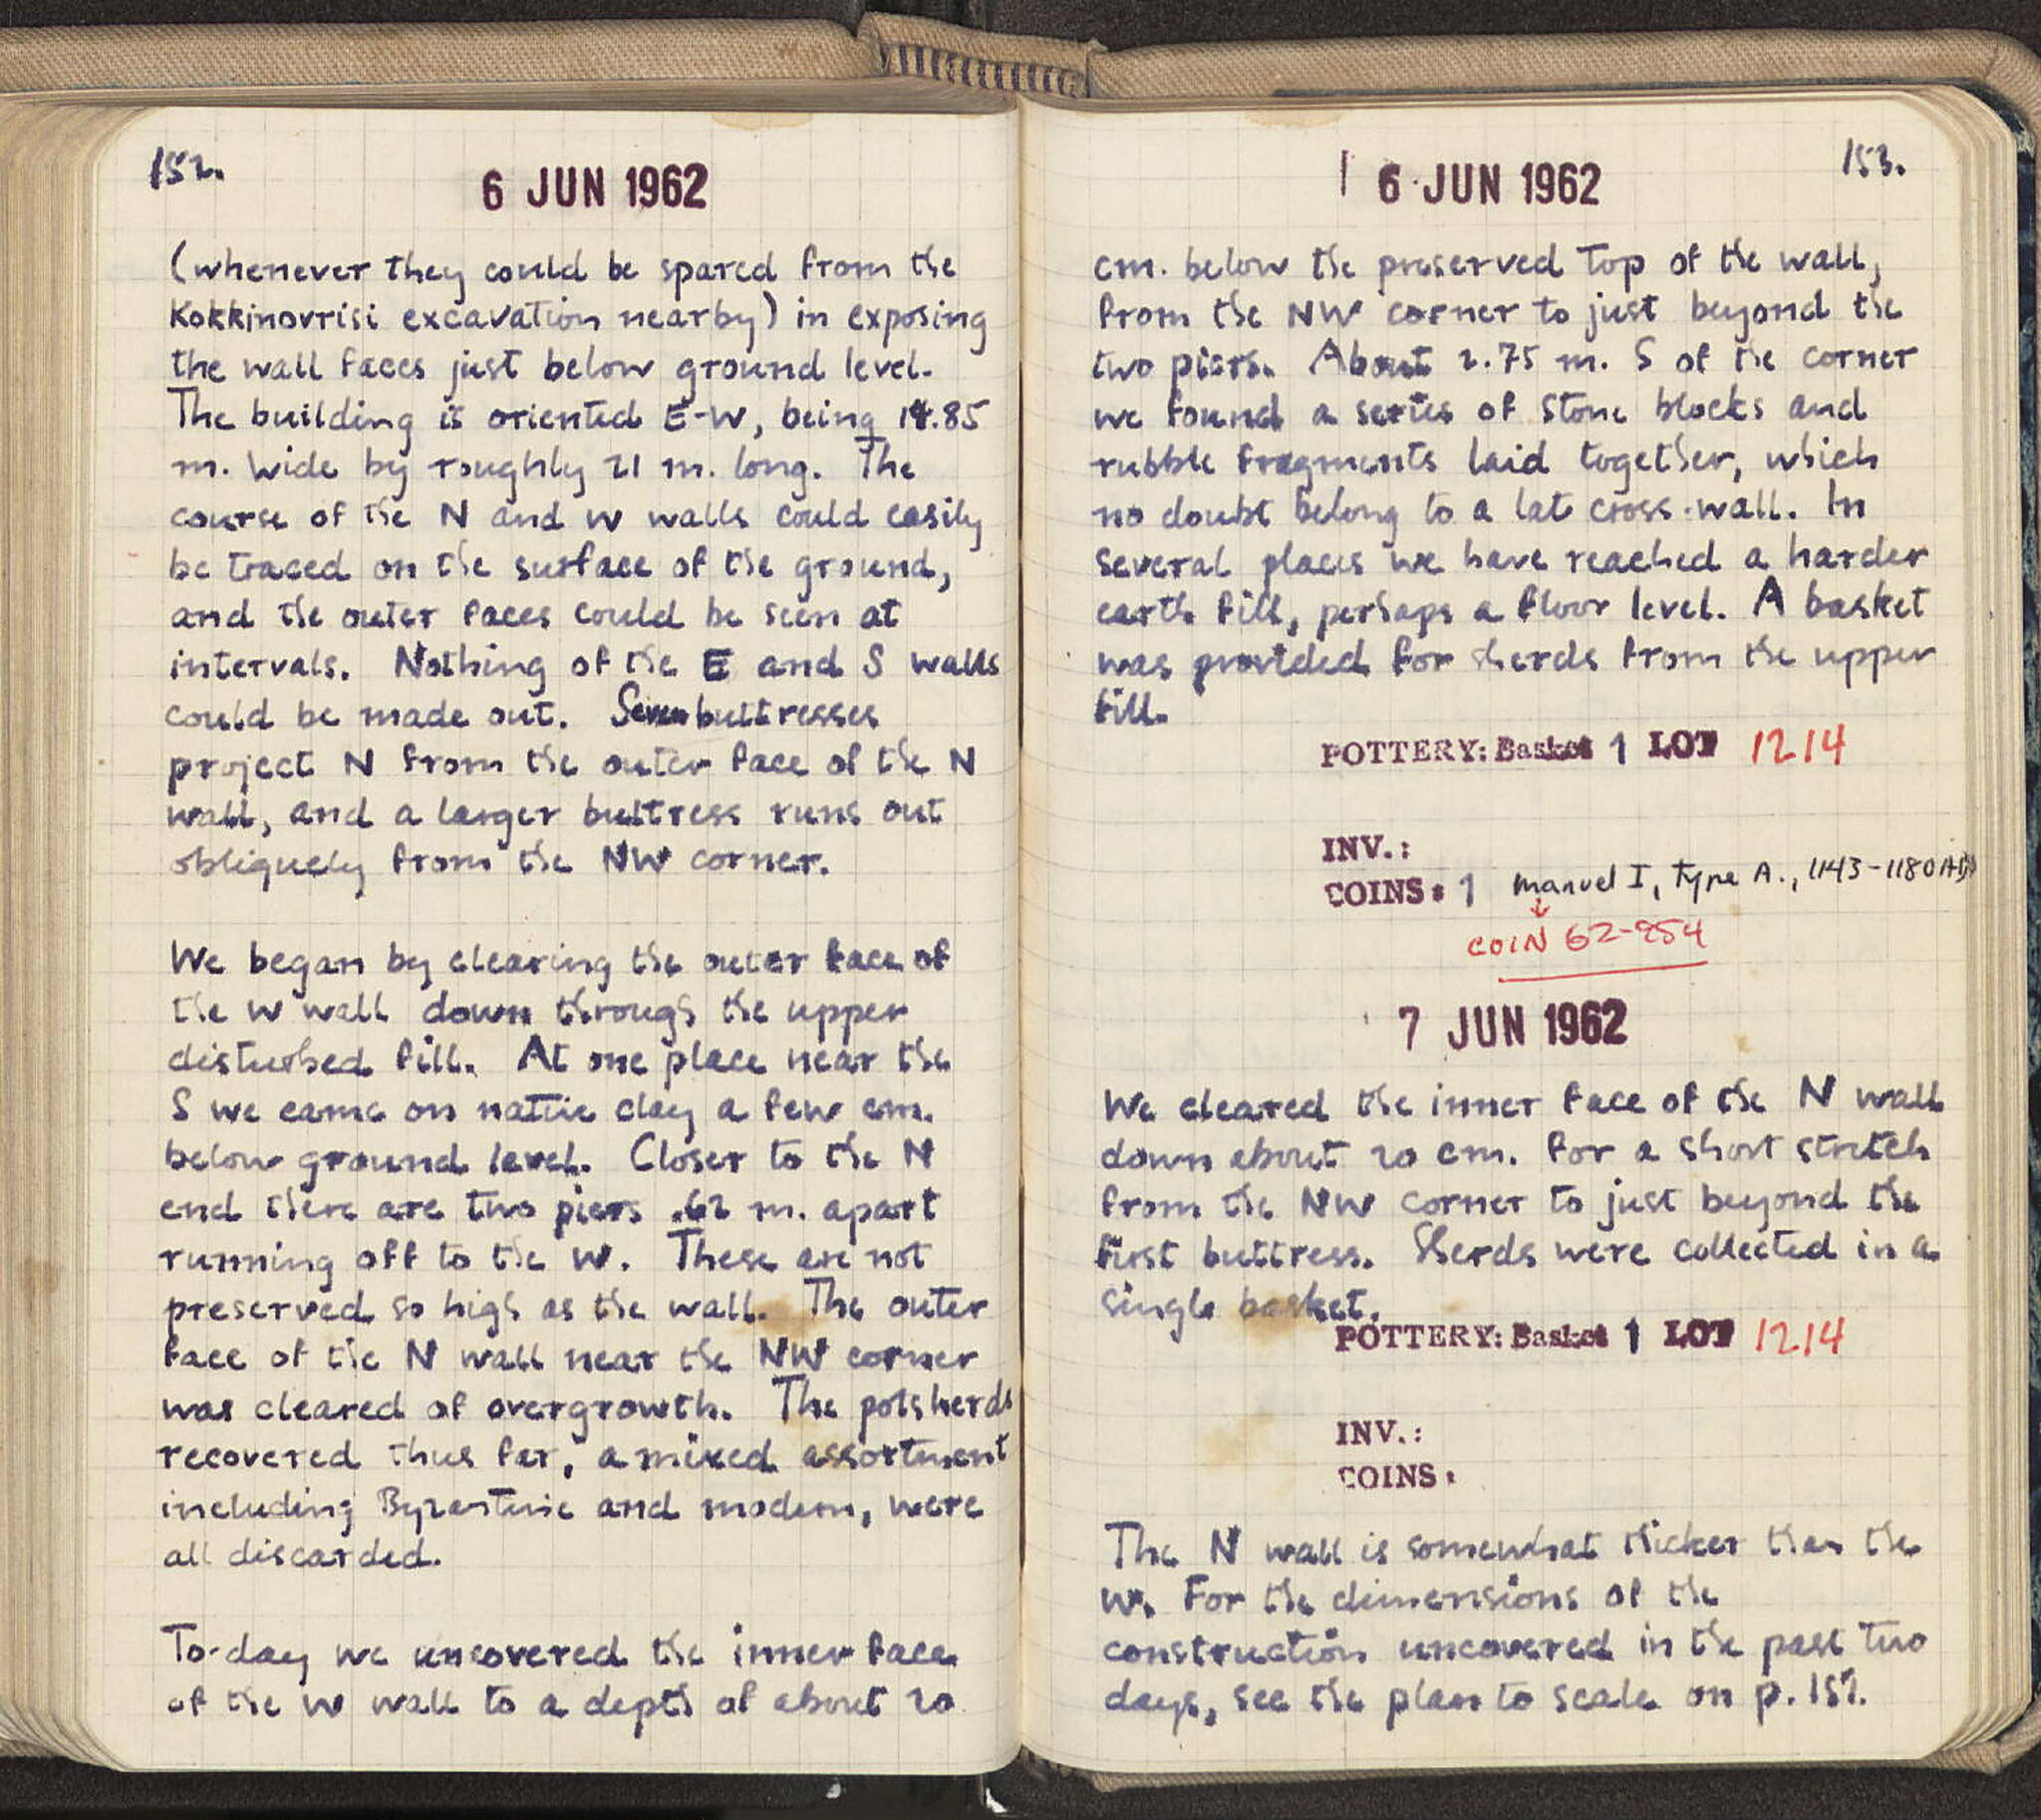 152.
6 JUN 1962
(whenever they could be spared from the
Kokkinovrisi excavation nearby) in exposing
the wall faces just below ground level.
The building is oriented E-W, being 14.85
m. wide by roughly 21 m. long. The
course of the N and W walls could easily
be traced on the surface of the ground,
and the outer faces could be seen at
intervals. Nothing of the E and S walls
could be made out. Seven buttresses
project N from the outer face of the N
wall, and a larger buttress runs out
obliquely from the NW corner.
We began by clearing the outer face of
the W wall down through the upper
disturbed fill. At one place near the
S we came on native clay a few cm.
below ground level. Closer to the N
end there are two piers .62 m. apart
running off to the W. These are not
preserved so high as the wall. The outer
face of the N wall near the NW corner
was cleared of overgrowth. The potsherds
recovered thus far, a mixed assortment
including Byzantine and modern, were
all discarded.
To-day we uncovered the inner face
of the W wall to a depth of about 20
153.
6 JUN 1962
cm. below the preserved top of the wall,
from the NW corner to just beyond the
two piers. About 2.75 m. S of the corner
we found a series of stone blocks and
rubble fragments laid together, which
no doubt belong to a late cross-wall. In
several places we have reached a harder
earth fill, perhaps a floor level. A basket
was provided for sherds from the upper
fill.
POTTERY: Basket 1 LOT 1214
INV.:
COINS: 1 Manuel I, Type A., 1143-1180 AD
COIN 62-254
7 JUN 1962
We cleared the inner face of the N wall
down about 20 cm. for a short stretch
from the NW corner to just beyond the
first buttress. Sherds were collected in a
single basket.
POTTERY: Basket 1 LOT 1214
INV.:
COINS:
The N wall is somewhat thicker than the
W. For the dimensions of the
construction uncovered in the past two
days, see the plan to scale on p.